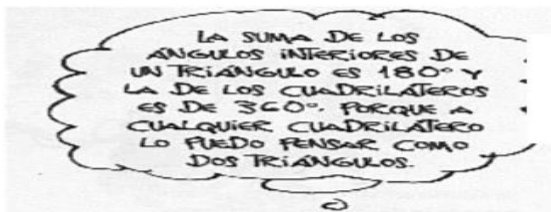 LA SUMA DE LOS
ÁNGULOS INTERIORES DE
UN TRIÁNGULO ES 180° Y
LA DE LOS CUADRILÁTEROS
ES DE 360°, PORQUE A
CUALQUIER CUADRILÁTERO
LO PUEDO PENSAR COMO
DOS TRIÁNGULOS.